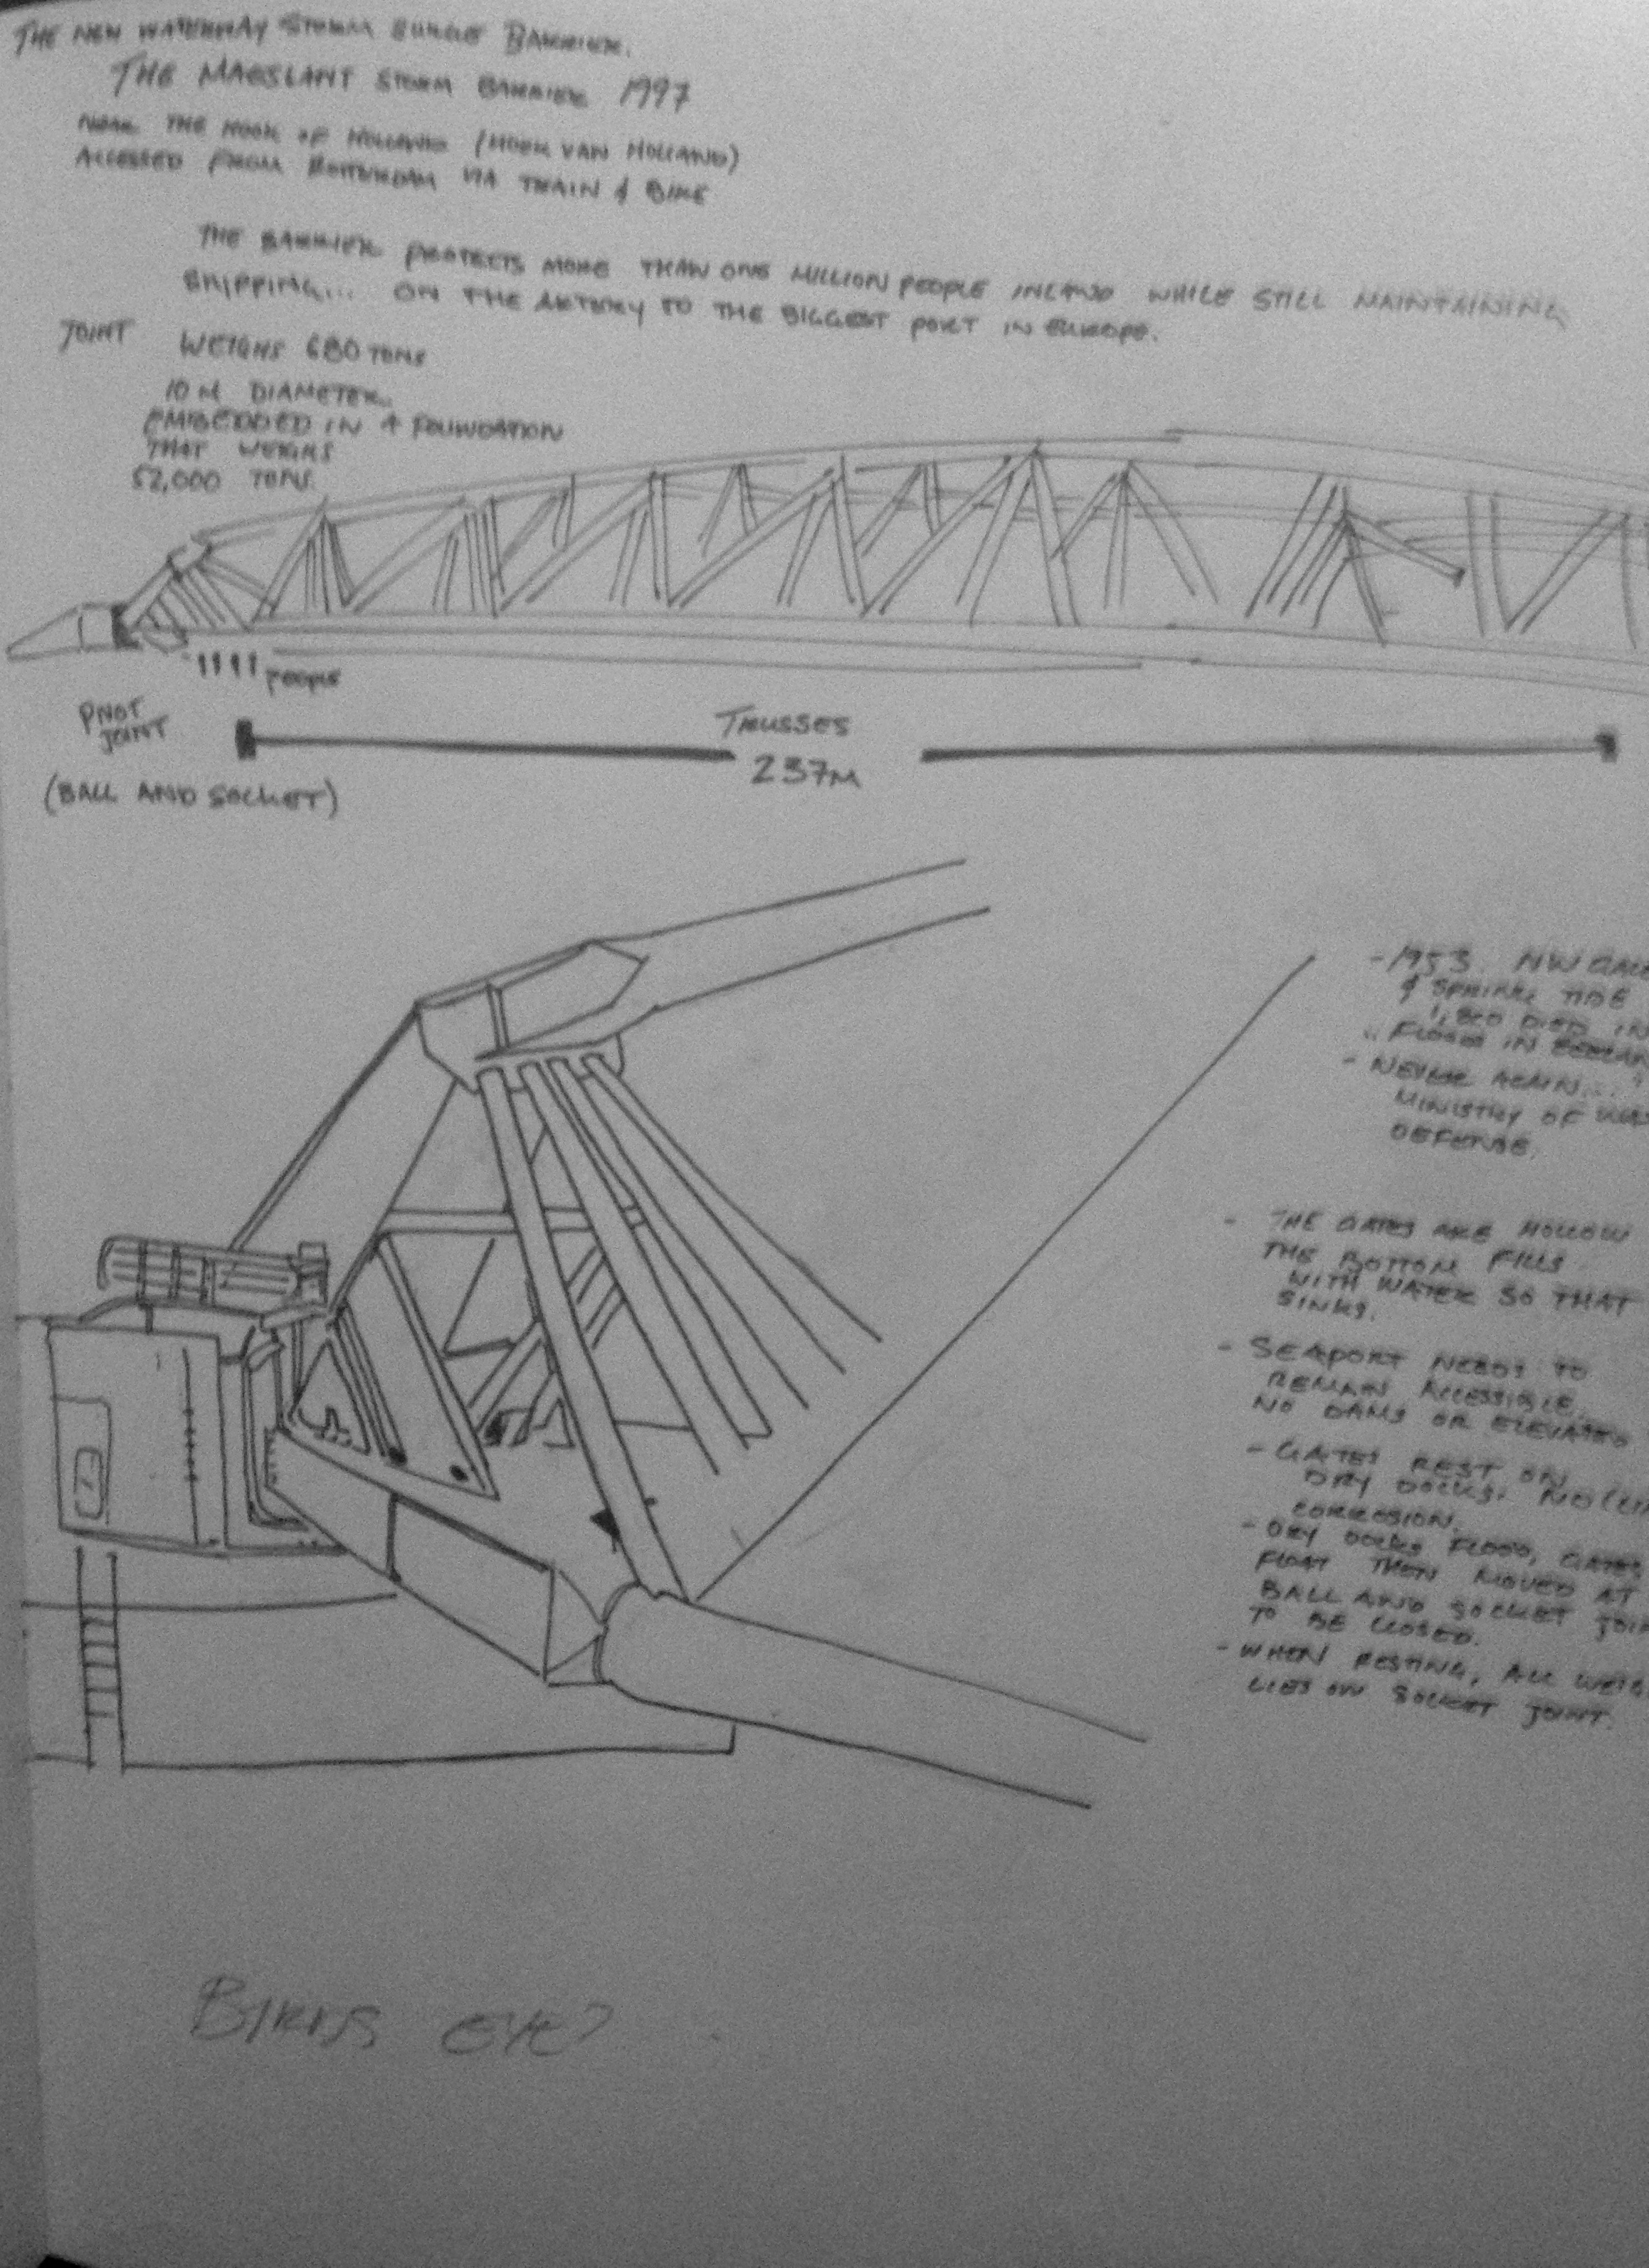 THE NEW WATERWAY STORM SURGE BARRIER.
THE MAESLANT STORM BARRIER 1997
NEAR THE HOOK OF HOLLAND (HOEK VAN HOLLAND)
ACCESSED FROM ROTTERDAM VIA TRAIN & BIKE
THE BARRIER PROTECTS MORE THAN ONE MILLION PEOPLE INLAND WHILE STILL MAINTAINING
SHIPPING... ON THE ARTERY TO THE BIGGEST PORT IN EUROPE.
JOINT WEIGHS 680 TONS
10 M DIAMETER.
EMBEDDED IN A FOUNDATION
THAT WEIGHS
52,000 TONS.
PEOPLE
PIVOT
JOINT
(BALL AND SOCKET)
TRUSSES
237M
- 1953. NW
& SPRING TIDE
1,800 DIED IN
FLOOD IN
- NEVER AGAIN...
MINISTRY OF
DEFENSE.
- THE GATES ARE HOLLOW
THE BOTTOM FILLS
WITH WATER SO THAT
SINKS.
- SEAPORT NEEDS TO
REMAIN ACCESSIBLE.
NO DAMS OR ELEVATED
- GATES REST ON
DRY DOCKS. NO
CORROSION.
- DRY DOCKS FLOOD, GATES
FLOAT THEN MOVED AT
BALL AND SOCKET
TO BE CLOSED.
- WHEN RESTING, ALL
LIES ON SOCKET JOINT.
BIRDS EYE?